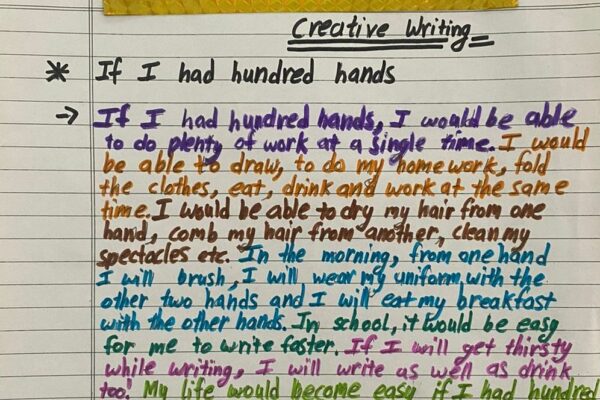 Creative Writing
* If I had hundred hands
→ If I had hundred hands, I would be able
to do plenty of work at a single time. I would
be able to draw, to do my homework, fold
the clothes, eat, drink and work at the same
time. I would be able to dry my hair from one
hand, comb my hair from another, clean my
spectacles etc. In the morning, from one hand
I will brush, I will wear my uniform with the
other two hands and I will eat my breakfast
with the other hands. In school, it would be easy
for me to write faster. If I will get thirsty
while writing, I will write as well as drink
too! My life would become easy if I had hundred